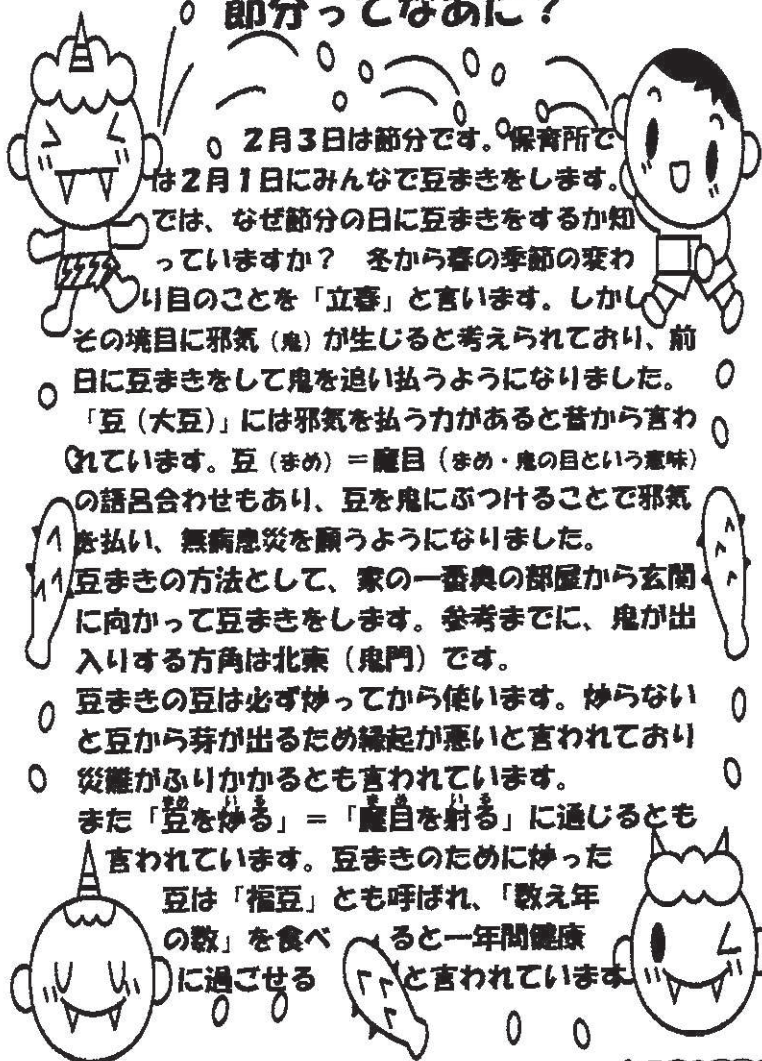 節分ってなあに？
２月３日は節分です。保育所で
は２月１日にみんなで豆まきをします。
では、なぜ節分の日に豆まきをするか知
っていますか？　冬から春の季節の変わ
り目のことを「立春」と言います。しかし
その境目に邪気（鬼）が生じると考えられており、前
日に豆まきをして鬼を追い払うようになりました。
「豆（大豆）」には邪気を払う力があると昔から言わ
れています。豆（まめ）＝魔目（まめ・鬼の目という意味）
の語呂合わせもあり、豆を鬼にぶつけることで邪気
を払い、無病息災を願うようになりました。
豆まきの方法として、家の一番奥の部屋から玄関
に向かって豆まきをします。参考までに、鬼が出
入りする方角は北東（鬼門）です。
豆まきの豆は必ず炒ってから使います。炒らない
と豆から芽が出るため縁起が悪いと言われており
災難がふりかかるとも言われています。
また「豆を炒る」＝「魔目を射る」に通じるとも
言われています。豆まきのために炒った
豆は「福豆」とも呼ばれ、「数え年
の数」を食べると一年間健康
に過ごせると言われています